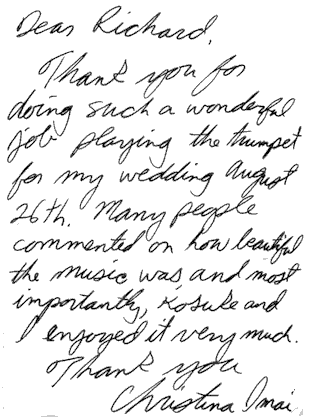 Dear Richard,
Thank you for
doing such a wonderful
job playing the trumpet
for my wedding August
26th. Many people
commented on how beautiful
the music was, and most
importantly, Kosuke and
I enjoyed it very much.
Thank you
Christina Imai